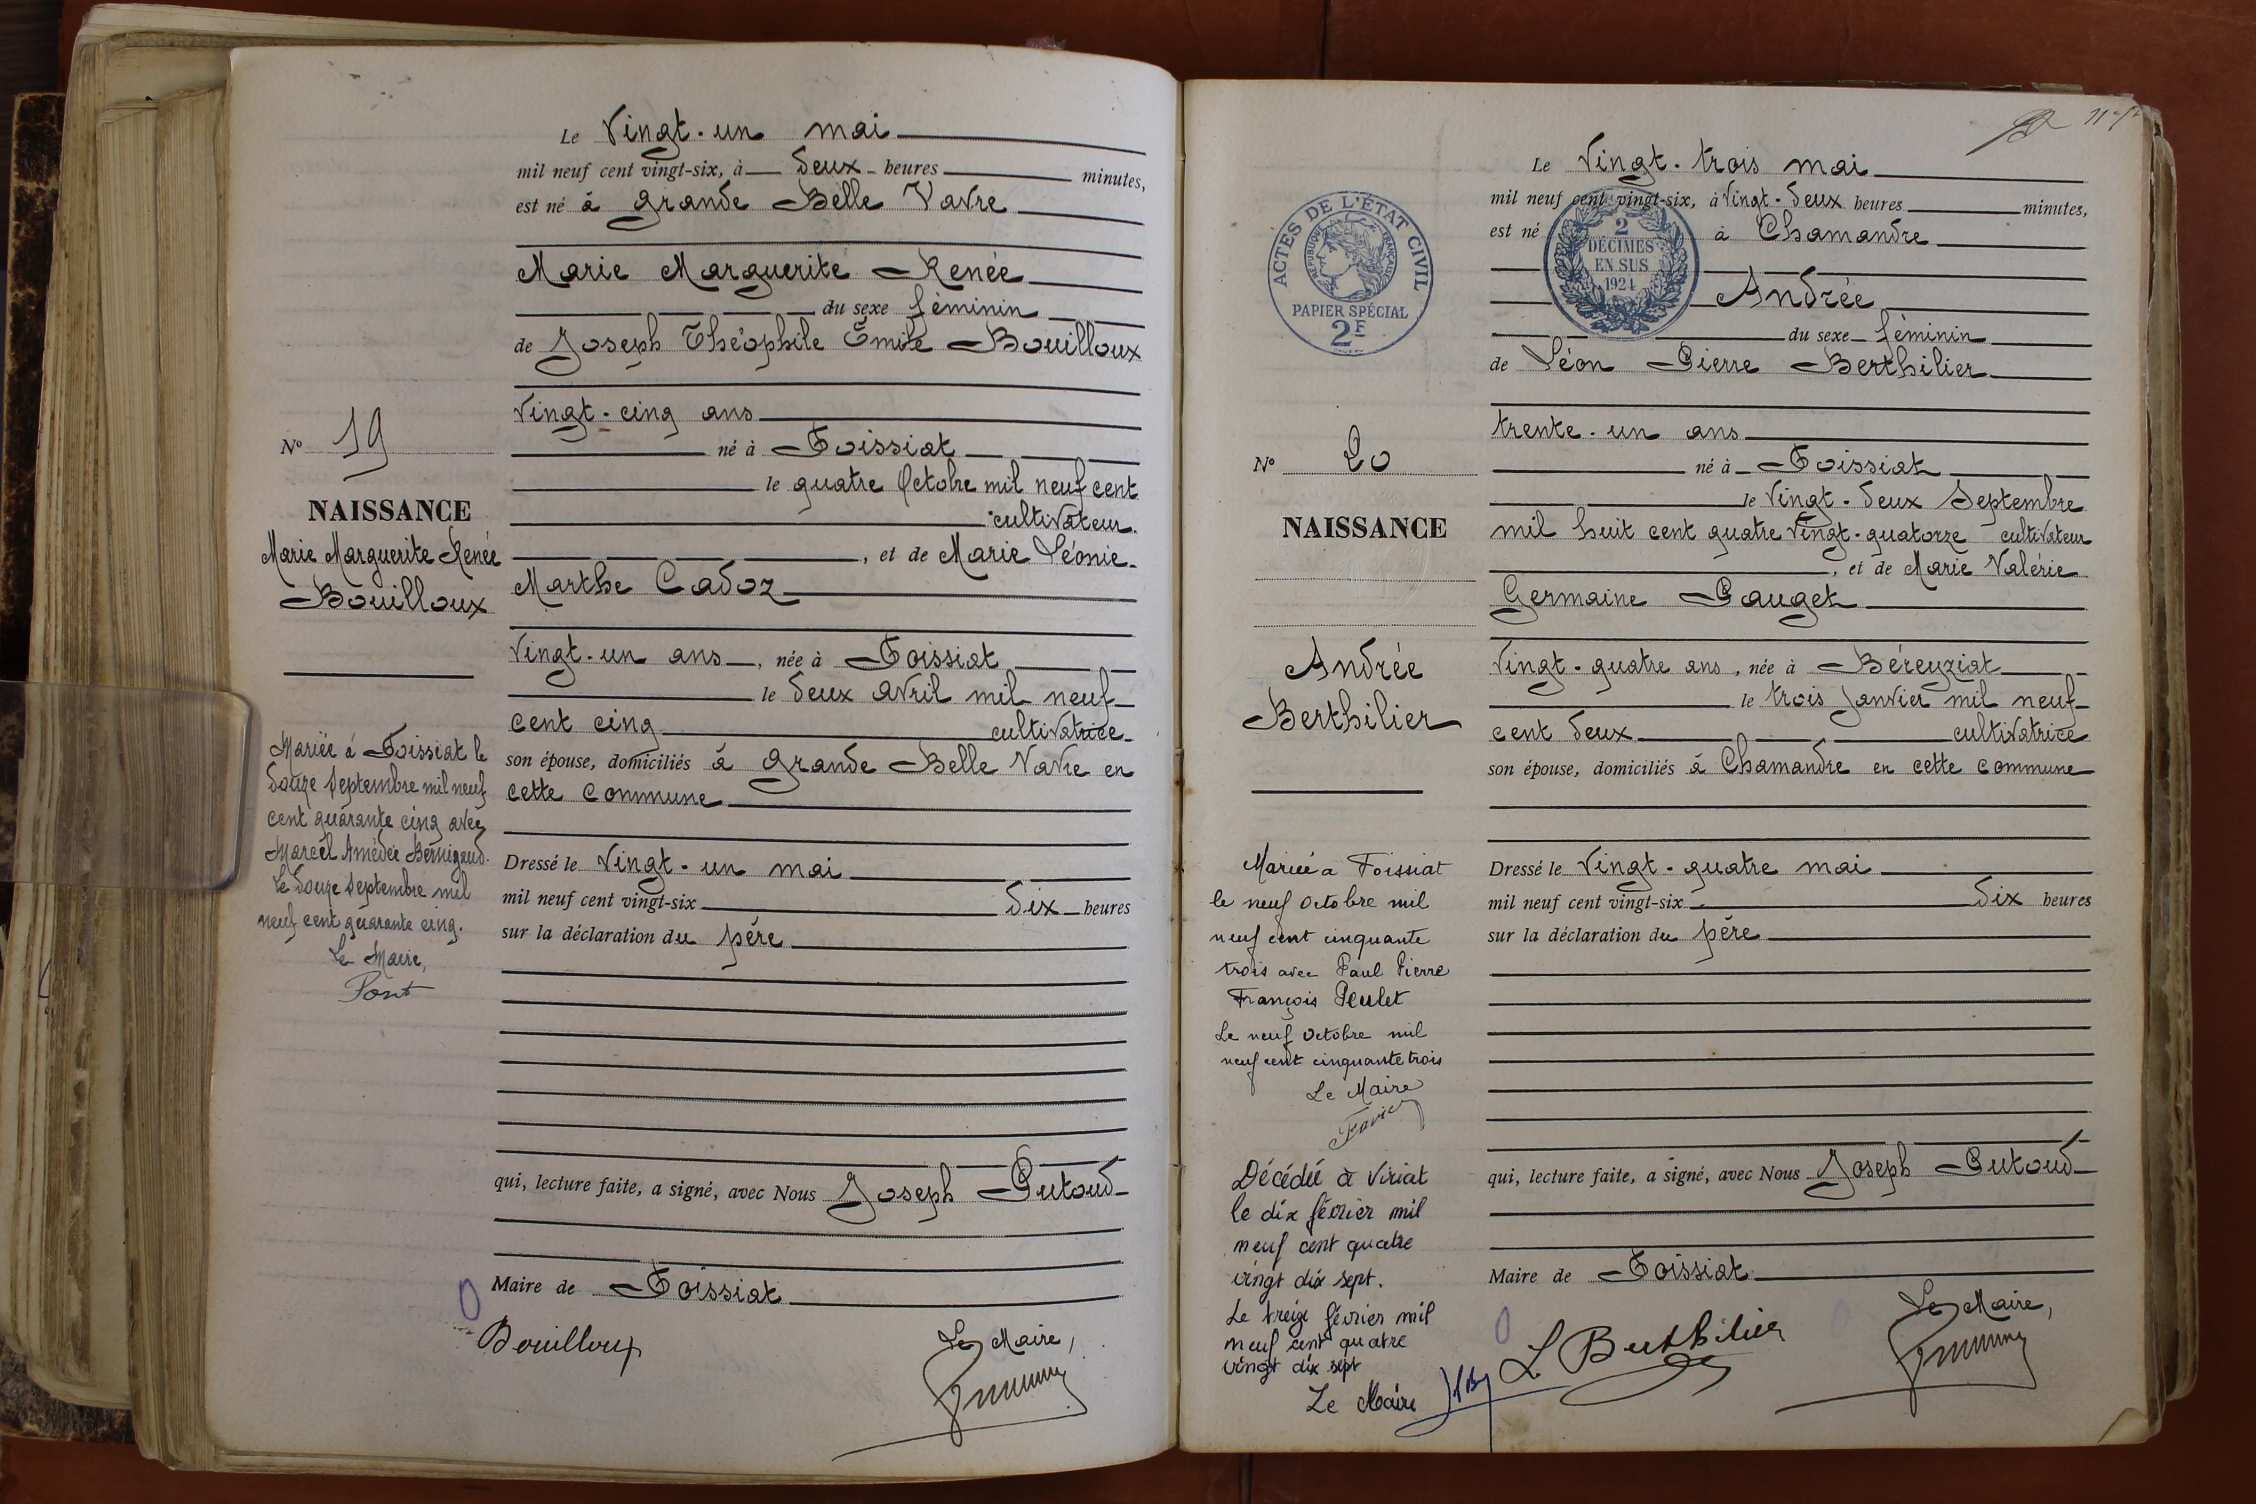 Le Vingt-un mai
mil neuf cent vingt-six, à deux heures minutes,
est né à grande Belle Vavre
Marie Marguerite Renée
du sexe féminin
de Joseph Théophile Émile Bouilloux
Vingt-cinq ans
né à Foissiat
le quatre Octobre mil neuf cent
cultivateur
, et de Marie Léonie
Marthe Cadoz
Vingt-un ans, née à Foissiat
le deux avril mil neuf
cent cinq cultivatrice
son épouse, domiciliés à grande Belle Vavre en
cette commune
Dressé le Vingt-un mai
mil neuf cent vingt-six dix heures
sur la déclaration du père
qui, lecture faite, a signé, avec Nous Joseph Putoud
Maire de Foissiat
Bouilloux
Le Maire,
No 19
NAISSANCE
Marie Marguerite Renée
Bouilloux
Mariée à Foissiat le
douze Septembre mil neuf
cent quarante cinq avec
Marcel Amédée Bernigaud.
Le douze Septembre mil
neuf cent quarante cinq.
Le Maire,
Pont
ACTES DE L'ÉTAT CIVIL
RÉPUBLIQUE FRANÇAISE
PAPIER SPÉCIAL
2F
No 20
NAISSANCE
Andrée
Berthilier
Mariée à Foissiat
le neuf octobre mil
neuf cent cinquante
trois avec Paul Pierre
François Peulet
Le neuf octobre mil
neuf cent cinquante trois
Le Maire
Décédée à Viriat
le dix février mil
neuf cent quatre
vingt dix sept.
Le treize février mil
neuf cent quatre
vingt dix sept
Le Maire
Le Vingt-trois mai
mil neuf cent vingt-six, à Vingt-deux heures minutes,
est né à Chamandre
2
DÉCIMES
EN SUS
1924
Andrée
du sexe féminin
de Léon Pierre Berthilier
trente-un ans
né à Foissiat
le Vingt-deux Septembre
mil huit cent quatre Vingt-quatorze cultivateur
, et de Marie Valérie
Germaine Pauget
Vingt-quatre ans, née à Béreyziat
le trois Janvier mil neuf
cent deux cultivatrice
son épouse, domiciliés à Chamandre en cette commune
Dressé le Vingt-quatre mai
mil neuf cent vingt-six dix heures
sur la déclaration du père
qui, lecture faite, a signé, avec Nous Joseph Putoud
Maire de Foissiat
L Berthilier
Le Maire,